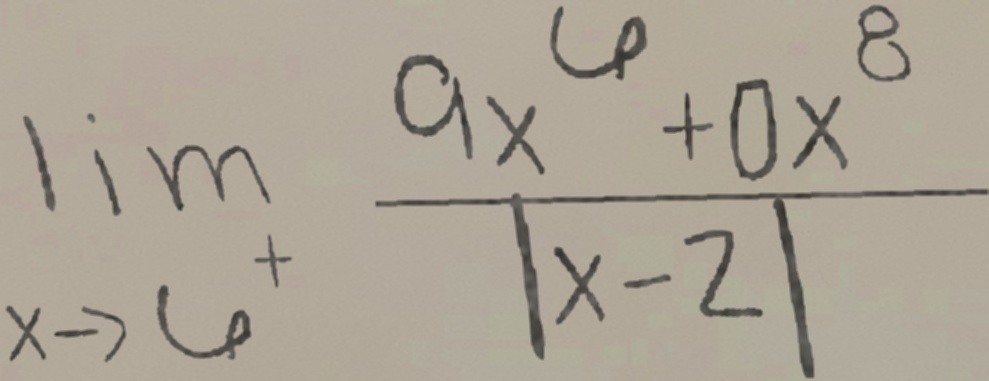 lim x→6⁺ (9x⁶ + 0x⁸) / |x - 2|